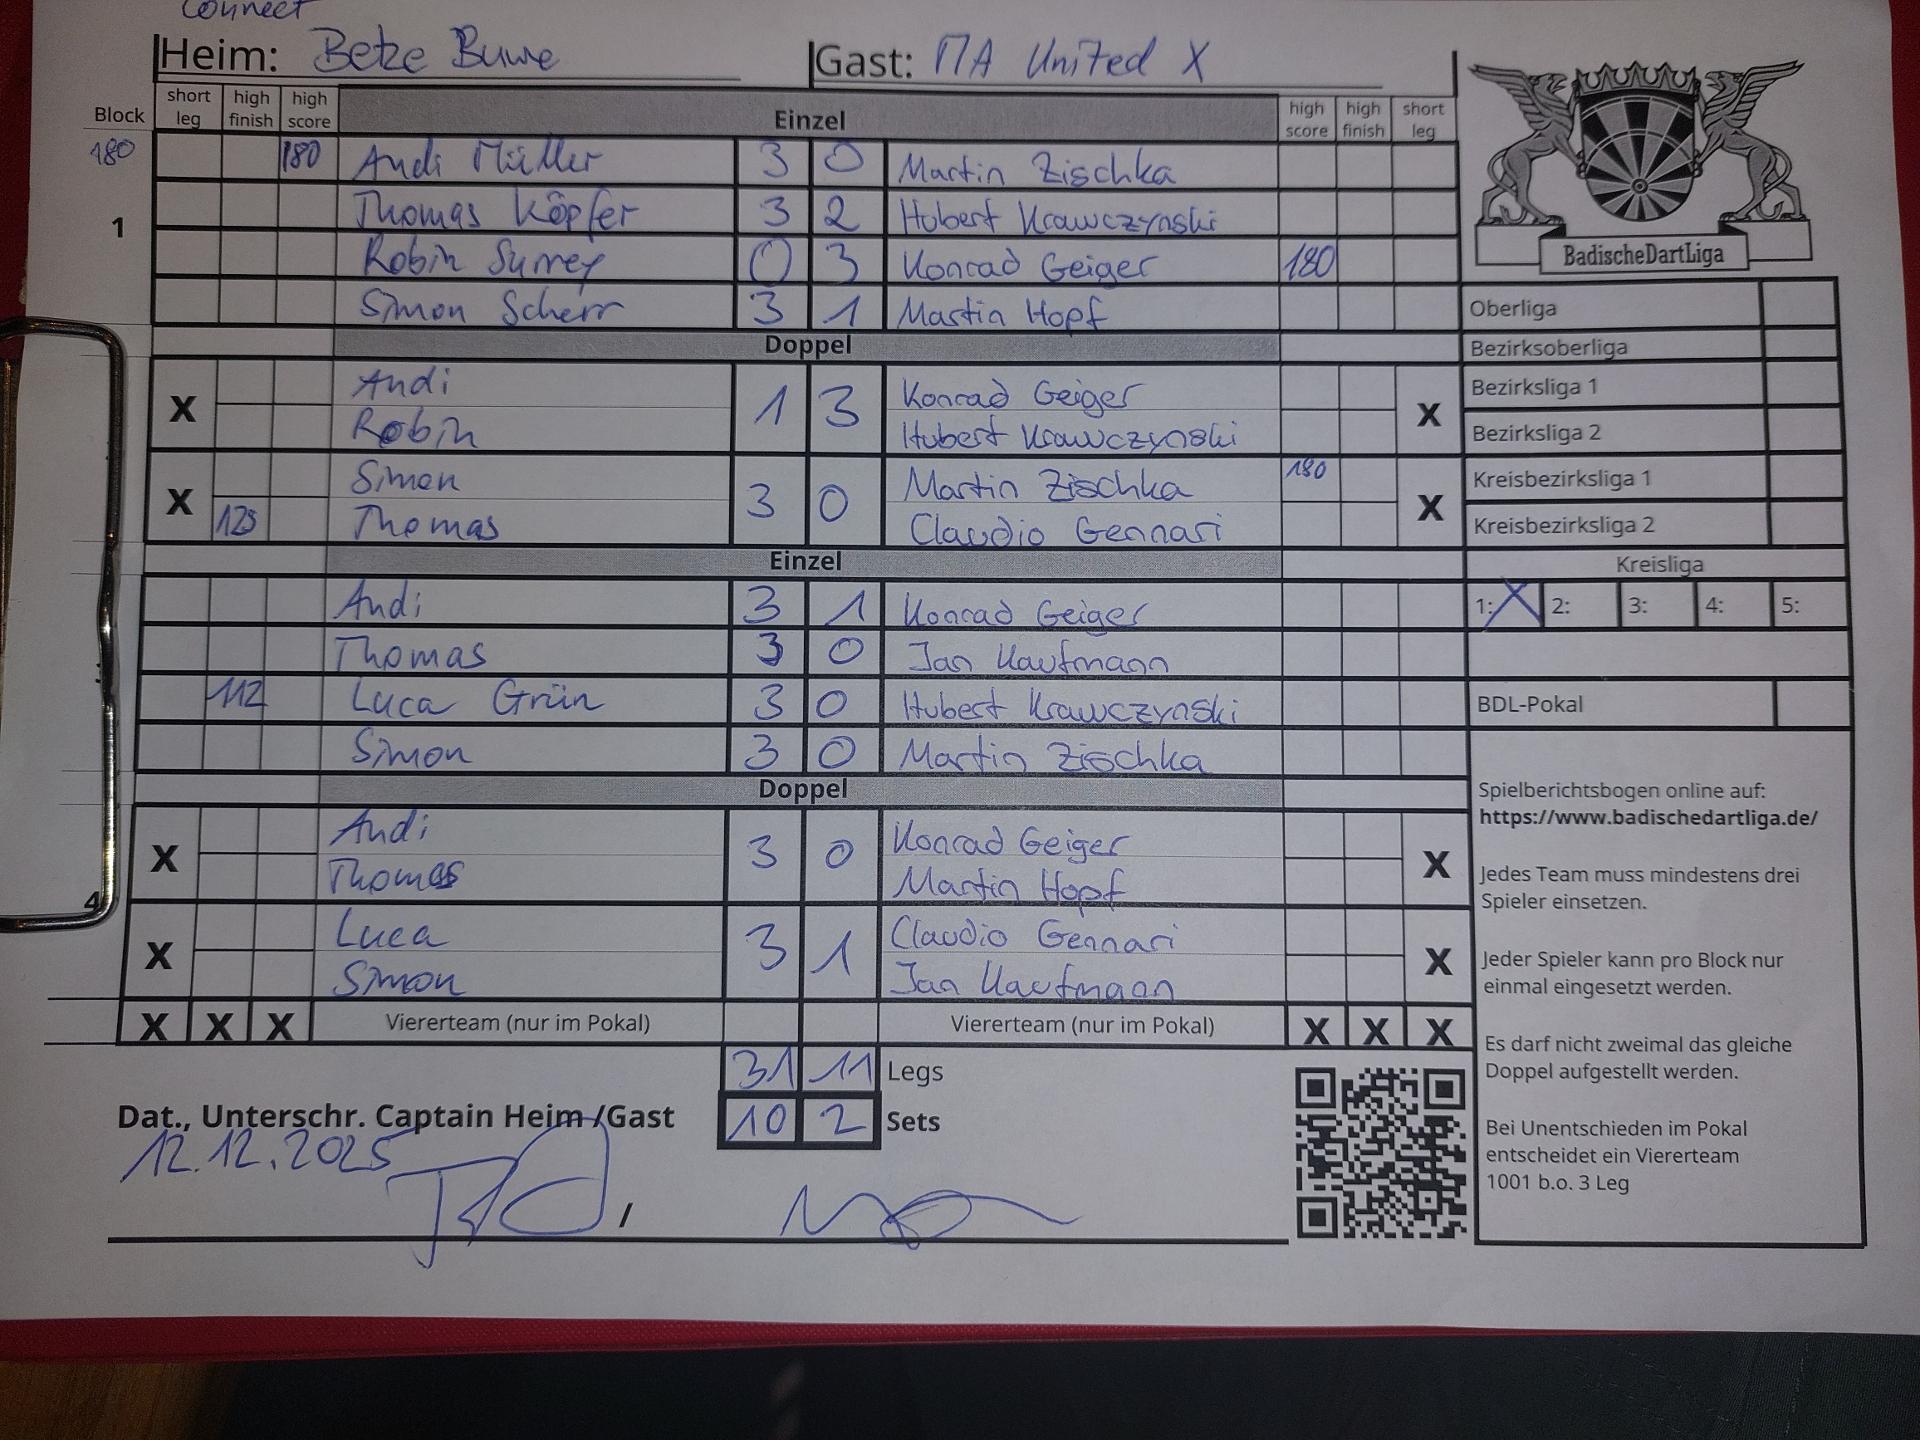 Connect
Heim: Betze Buwe Gast: MA United X
Block short leg high finish high score Einzel high score high finish short leg
180 180 Andi Müller 3 0 Martin Zischka
1 Thomas Köpfer 3 2 Hubert Krawczynski
Robin Surrey 0 3 Konrad Geiger 180
Simon Scherr 3 1 Martin Hopf
Doppel
X Andi 1 3 Konrad Geiger X
Robin Hubert Krawczynski
X Simon 3 0 Martin Zischka 180 X
125 Thomas Claudio Gennari
Einzel
Andi 3 1 Konrad Geiger
Thomas 3 0 Jan Kaufmann
112 Luca Grün 3 0 Hubert Krawczynski
Simon 3 0 Martin Zischka
Doppel
X Andi 3 0 Konrad Geiger X
4 Thomas Martin Hopf
X Luca 3 1 Claudio Gennari X
Simon Jan Kaufmann
X X X Viererteam (nur im Pokal) Viererteam (nur im Pokal) X X X
31 11 Legs
Dat., Unterschr. Captain Heim /Gast 10 2 Sets
12.12.2025
/
BadischeDartLiga
Oberliga
Bezirksoberliga
Bezirksliga 1
Bezirksliga 2
Kreisbezirksliga 1
Kreisbezirksliga 2
Kreisliga
1: X 2: 3: 4: 5:
BDL-Pokal
Spielberichtsbogen online auf:
https://www.badischedartliga.de/
Jedes Team muss mindestens drei
Spieler einsetzen.
Jeder Spieler kann pro Block nur
einmal eingesetzt werden.
Es darf nicht zweimal das gleiche
Doppel aufgestellt werden.
Bei Unentschieden im Pokal
entscheidet ein Viererteam
1001 b.o. 3 Leg